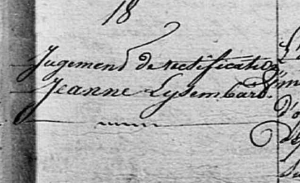 18
Jugement de rectification
Jeanne Lysembard.